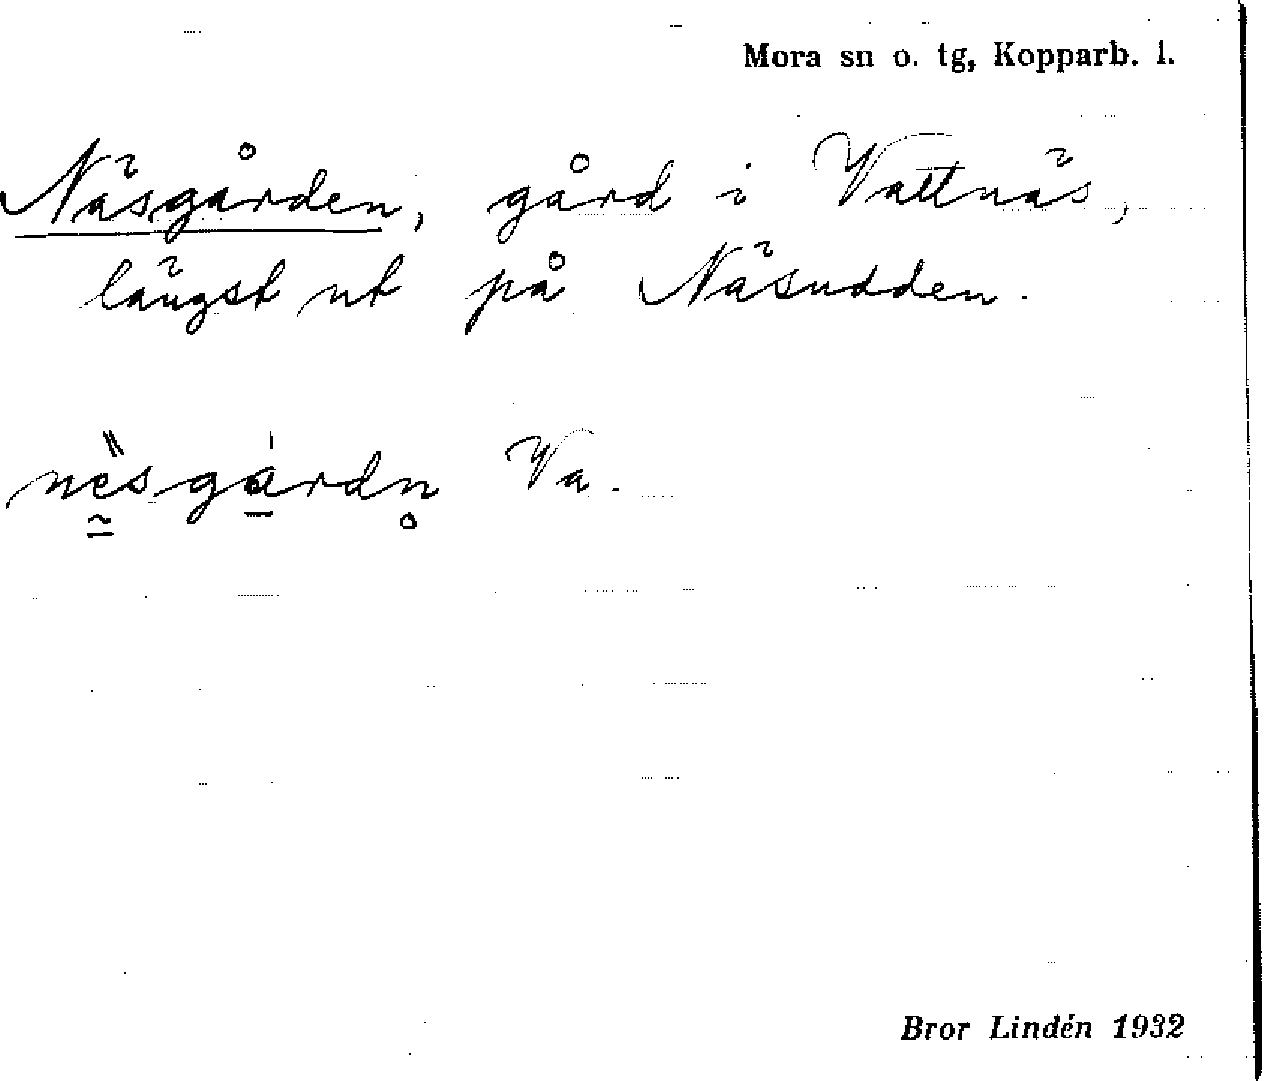 Mora sn o. tg, Kopparb. l.
Näsgården, gård i Vattnäs,
längst ut på Näsudden.
nèsgárdn Va.
Bror Lindén 1932